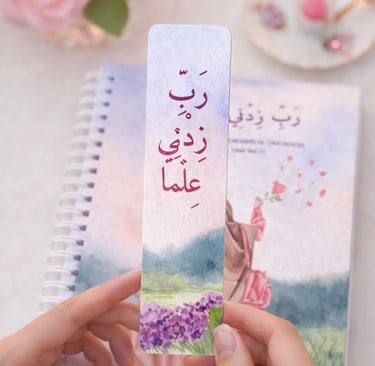 رَبِّ
زِدْنِي
عِلْمًا
رَبِّ زِدْنِي